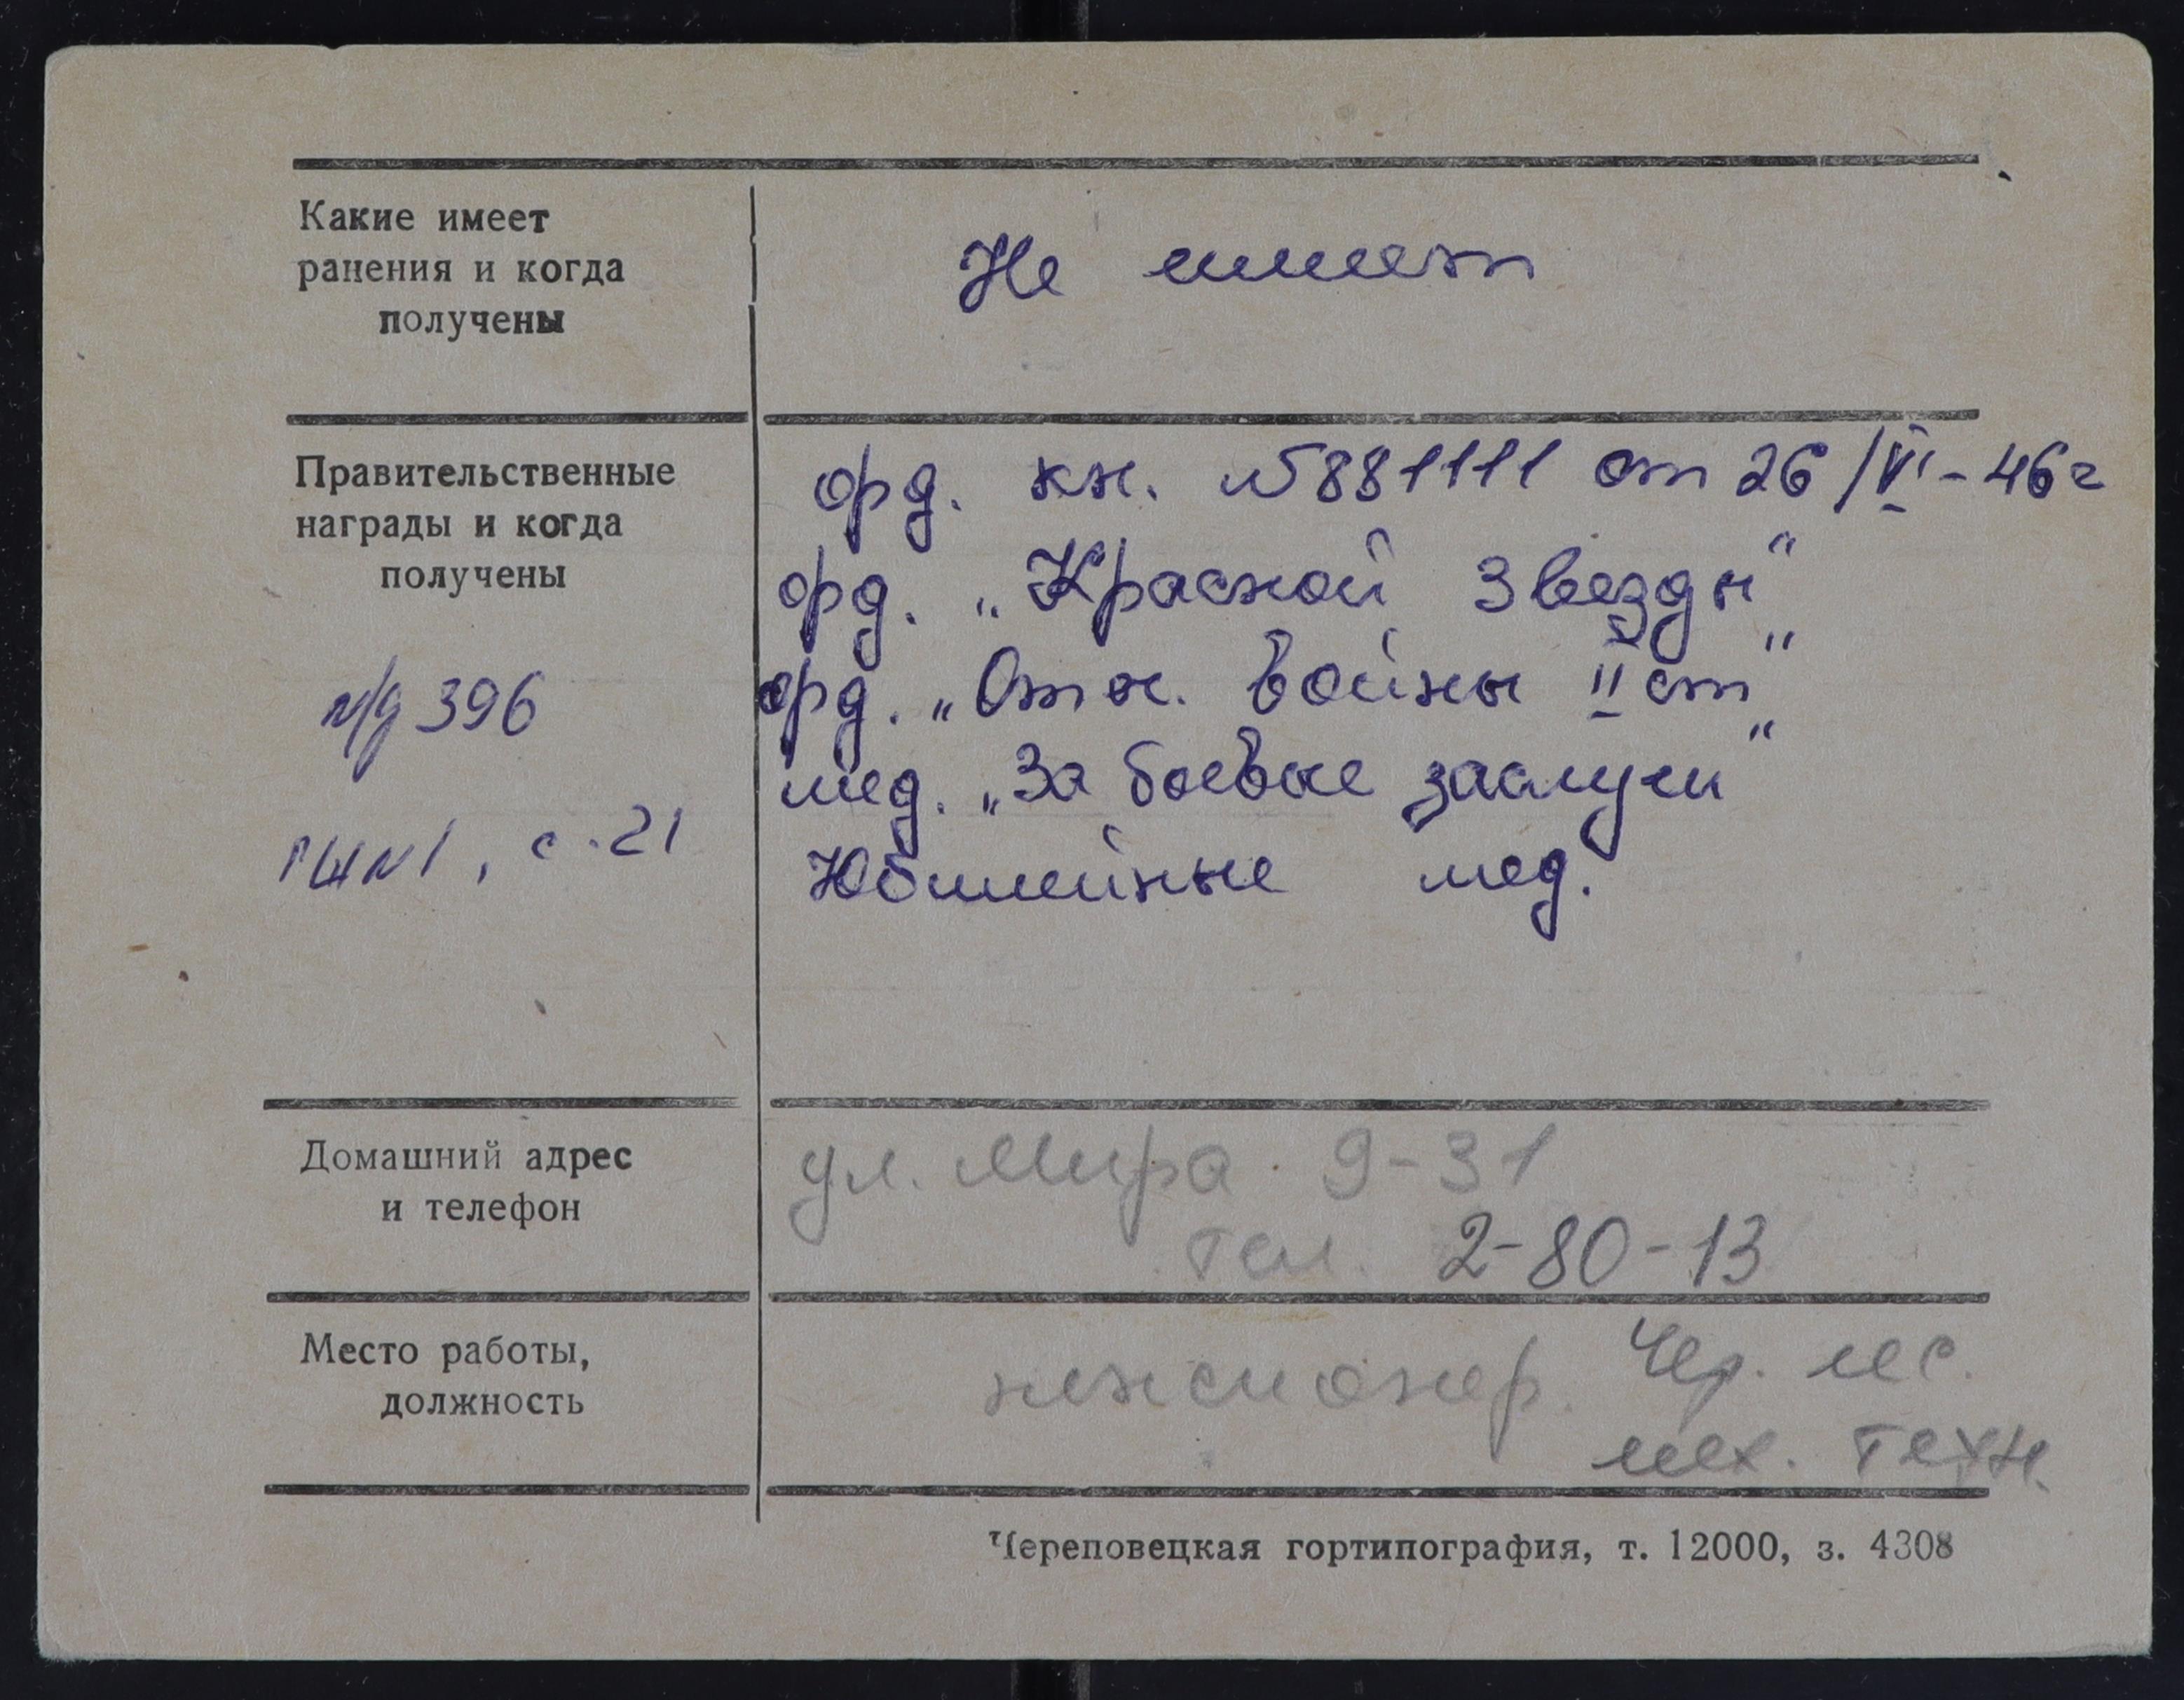 Какие имеет
ранения и когда
получены
Не имеет
Правительственные
награды и когда
получены
орд. кн. №881111 от 26/VI-46г
орд. „Красной Звезды"
орд. „Отеч. войны II ст"
мед. „За боевые заслуги"
Юбилейные мед.
л/д 396
с. 21
Домашний адрес
и телефон
ул. Мира 9-31
тел. 2-80-13
Место работы,
должность
пенсионер. Чер. лес.
мех. техн.
Череповецкая гортипография, т. 12000, з. 4308